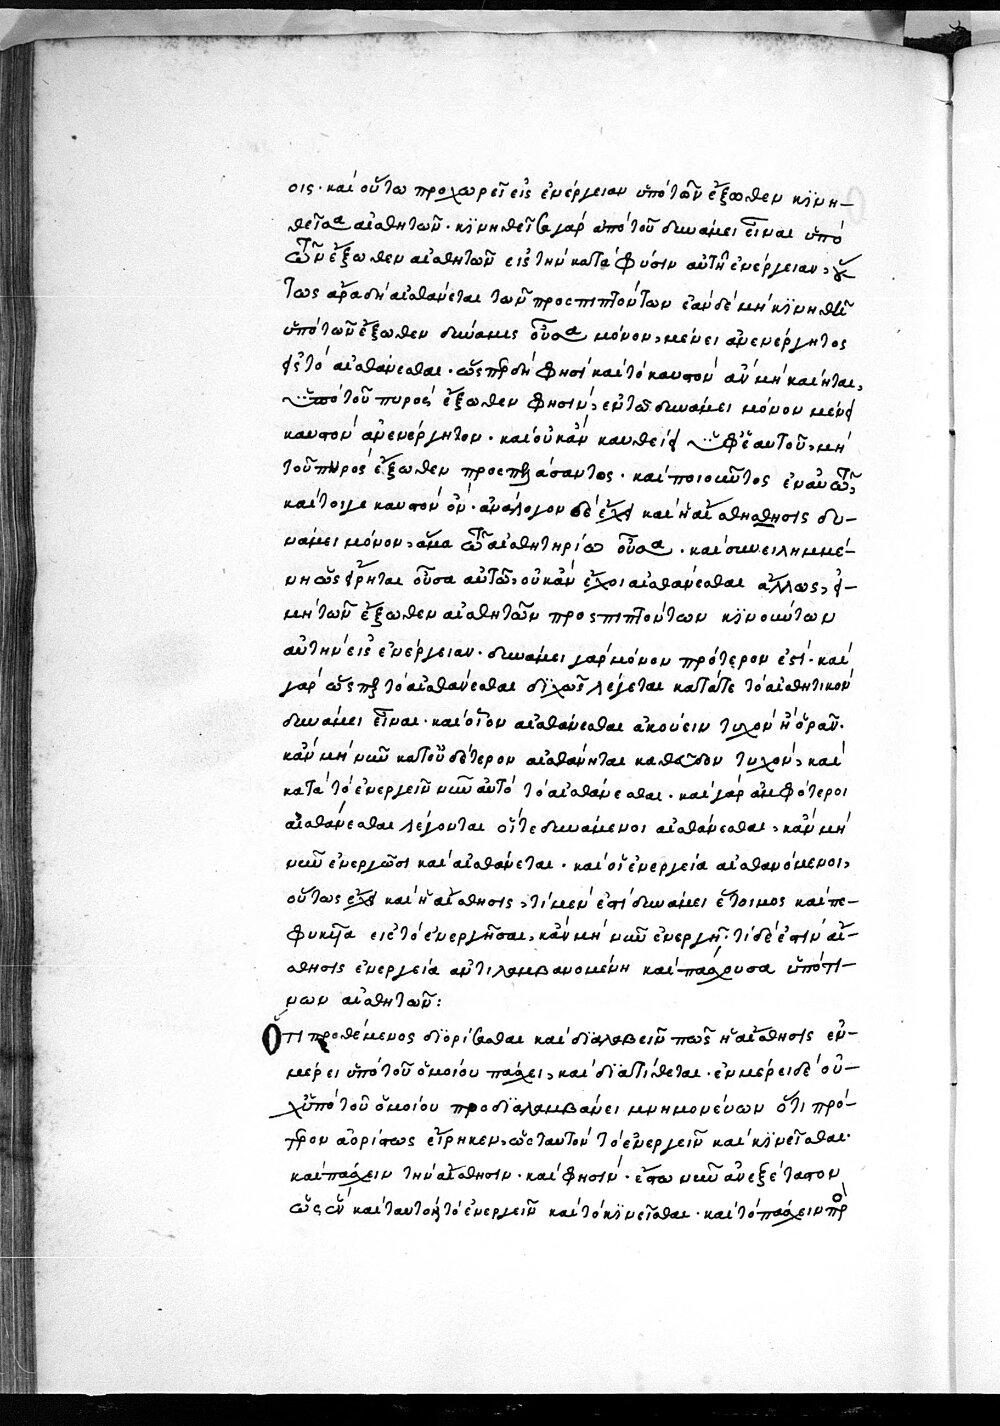 οις· καὶ οὕτω προχωρεῖ εἰς ἐνέργειαν ὑπὸ τῶν ἔξωθεν κϊνη-
θεῖσα αἰσθητῶν· κϊνηθεῖσα γὰρ ἀπὸ τοῦ δυνάμει εἶναι ὑπὸ
τῶν ἔξωθεν αἰσθητῶν εἰς τὴν κατὰ φύσιν αὐτῆ ἐνέργειαν, οὕ-
τως ἄρα δὴ αἰσθάνεται τῶν προσπιπτόντων ἐὰν δὲ μὴ κϊνηθῆ
ὑπὸ τῶν ἔξωθεν δυνάμις οὖσα μόνον, μένει ἀνενέργητος
εἰς τὸ αἰσθάνεσθαι· ὥσπερ δή φησι καὶ τὸ καυστὸν ἂν μὴ καίηται,
ὑπὸ τοῦ πυρὸς ἔξωθεν φησὶν, ἐν τῶ δυνάμει μόνον μένει
καυστὸν ἀνενέργητον· καὶ οὐκ ἂν καυθείη ὑφ' ἑαυτοῦ, μὴ
τοῦ πυρὸς ἔξωθεν προσπελάσαντος· καὶ ποιοῦντος ἐν αὐτῶ,
καίτοιγε καυστὸν ὂν· ἀνάλογον δὲ ἔχει καὶ ἡ αἴσθηθησις δυ-
νάμει μόνον, ἅμα τῶ αἰσθητηρίω οὖσα· καὶ συνειλημμέ-
νη ὡς εἴρηται οὖσα αὐτῶ, οὐκ ἂν ἔχοι αἰσθάνεσθαι ἄλλως, εἰ
μὴ τῶν ἔξωθεν αἰσθητῶν προσπιπτόντων κϊνούντων
αὐτὴν εἰς ἐνέργειαν· δυνάμει γὰρ μόνον πρότερον ἐστί· καὶ
γὰρ ὥσπερ τὸ αἰσθάνεσθαι δϊχῶς λέγεται κατά τε τὸ αἰσθητικὸν
δυνάμει εἶναι· καὶ οἷον αἰσθάνεσθαι ἀκούειν τυχὸν ἢ ὁρᾶν·
κἂν μὴ νῦν κατ' οὐδέτερον αἰσθάνηται καθεῦδον τυχὸν, καὶ
κατὰ τὸ ἐνεργεῖν νῦν αὐτὸ τὸ αἰσθάνεσθαι· καὶ γὰρ ἀμφότεροι
αἰσθάνεσθαι λέγονται οἵ τε δυνάμενοι αἰσθάνεσθαι, κἂν μὴ
νῦν ἐνεργῶσι καὶ αἰσθάνεται· καὶ οἱ ἐνεργεία αἰσθανόμενοι,
οὕτως ἔχει καὶ ἡ αἴσθησις, τὶ μὲν ἐστὶ δυνάμει ἕτοιμος καὶ πε-
φυκυῖα εἰς τὸ ἐνεργῆσαι, κἂν μὴ νῦν ἐνεργῆ· τὶ δὲ ἐστὶν αἴ-
σθησις ἐνεργεία ἀντιλαμβανομένη καὶ πάσχουσα ὑπό τι-
νων αἰσθητῶν:
Ὅτι προθέμενος δϊορίσασθαι καὶ δϊαλαβεῖν πῶς ἡ αἴσθησις ἐν
μέρει ὑπὸ τοῦ ὁμοίου πάσχει, καὶ δϊατίθεται· ἐν μέρει δὲ οὐ-
χ ὑπὸ τοῦ ὁμοίου προδϊαλαμβάνει μνημονεύων ὅτι πρό-
τερον ἀορίστως εἴρηκεν, ὡς ταυτὸν τὸ ἐνεργεῖν καὶ κϊνεῖσθαι·
καὶ πάσχειν τὴν αἴσθησιν· καὶ φησὶν· ἔστω νῦν ἀνεξέταστον
ὡς ὂν καὶ ταυτὸν τὸ ἐνεργεῖν καὶ τὸ κϊνεῖσθαι· καὶ τὸ πάσχειν πρὸ